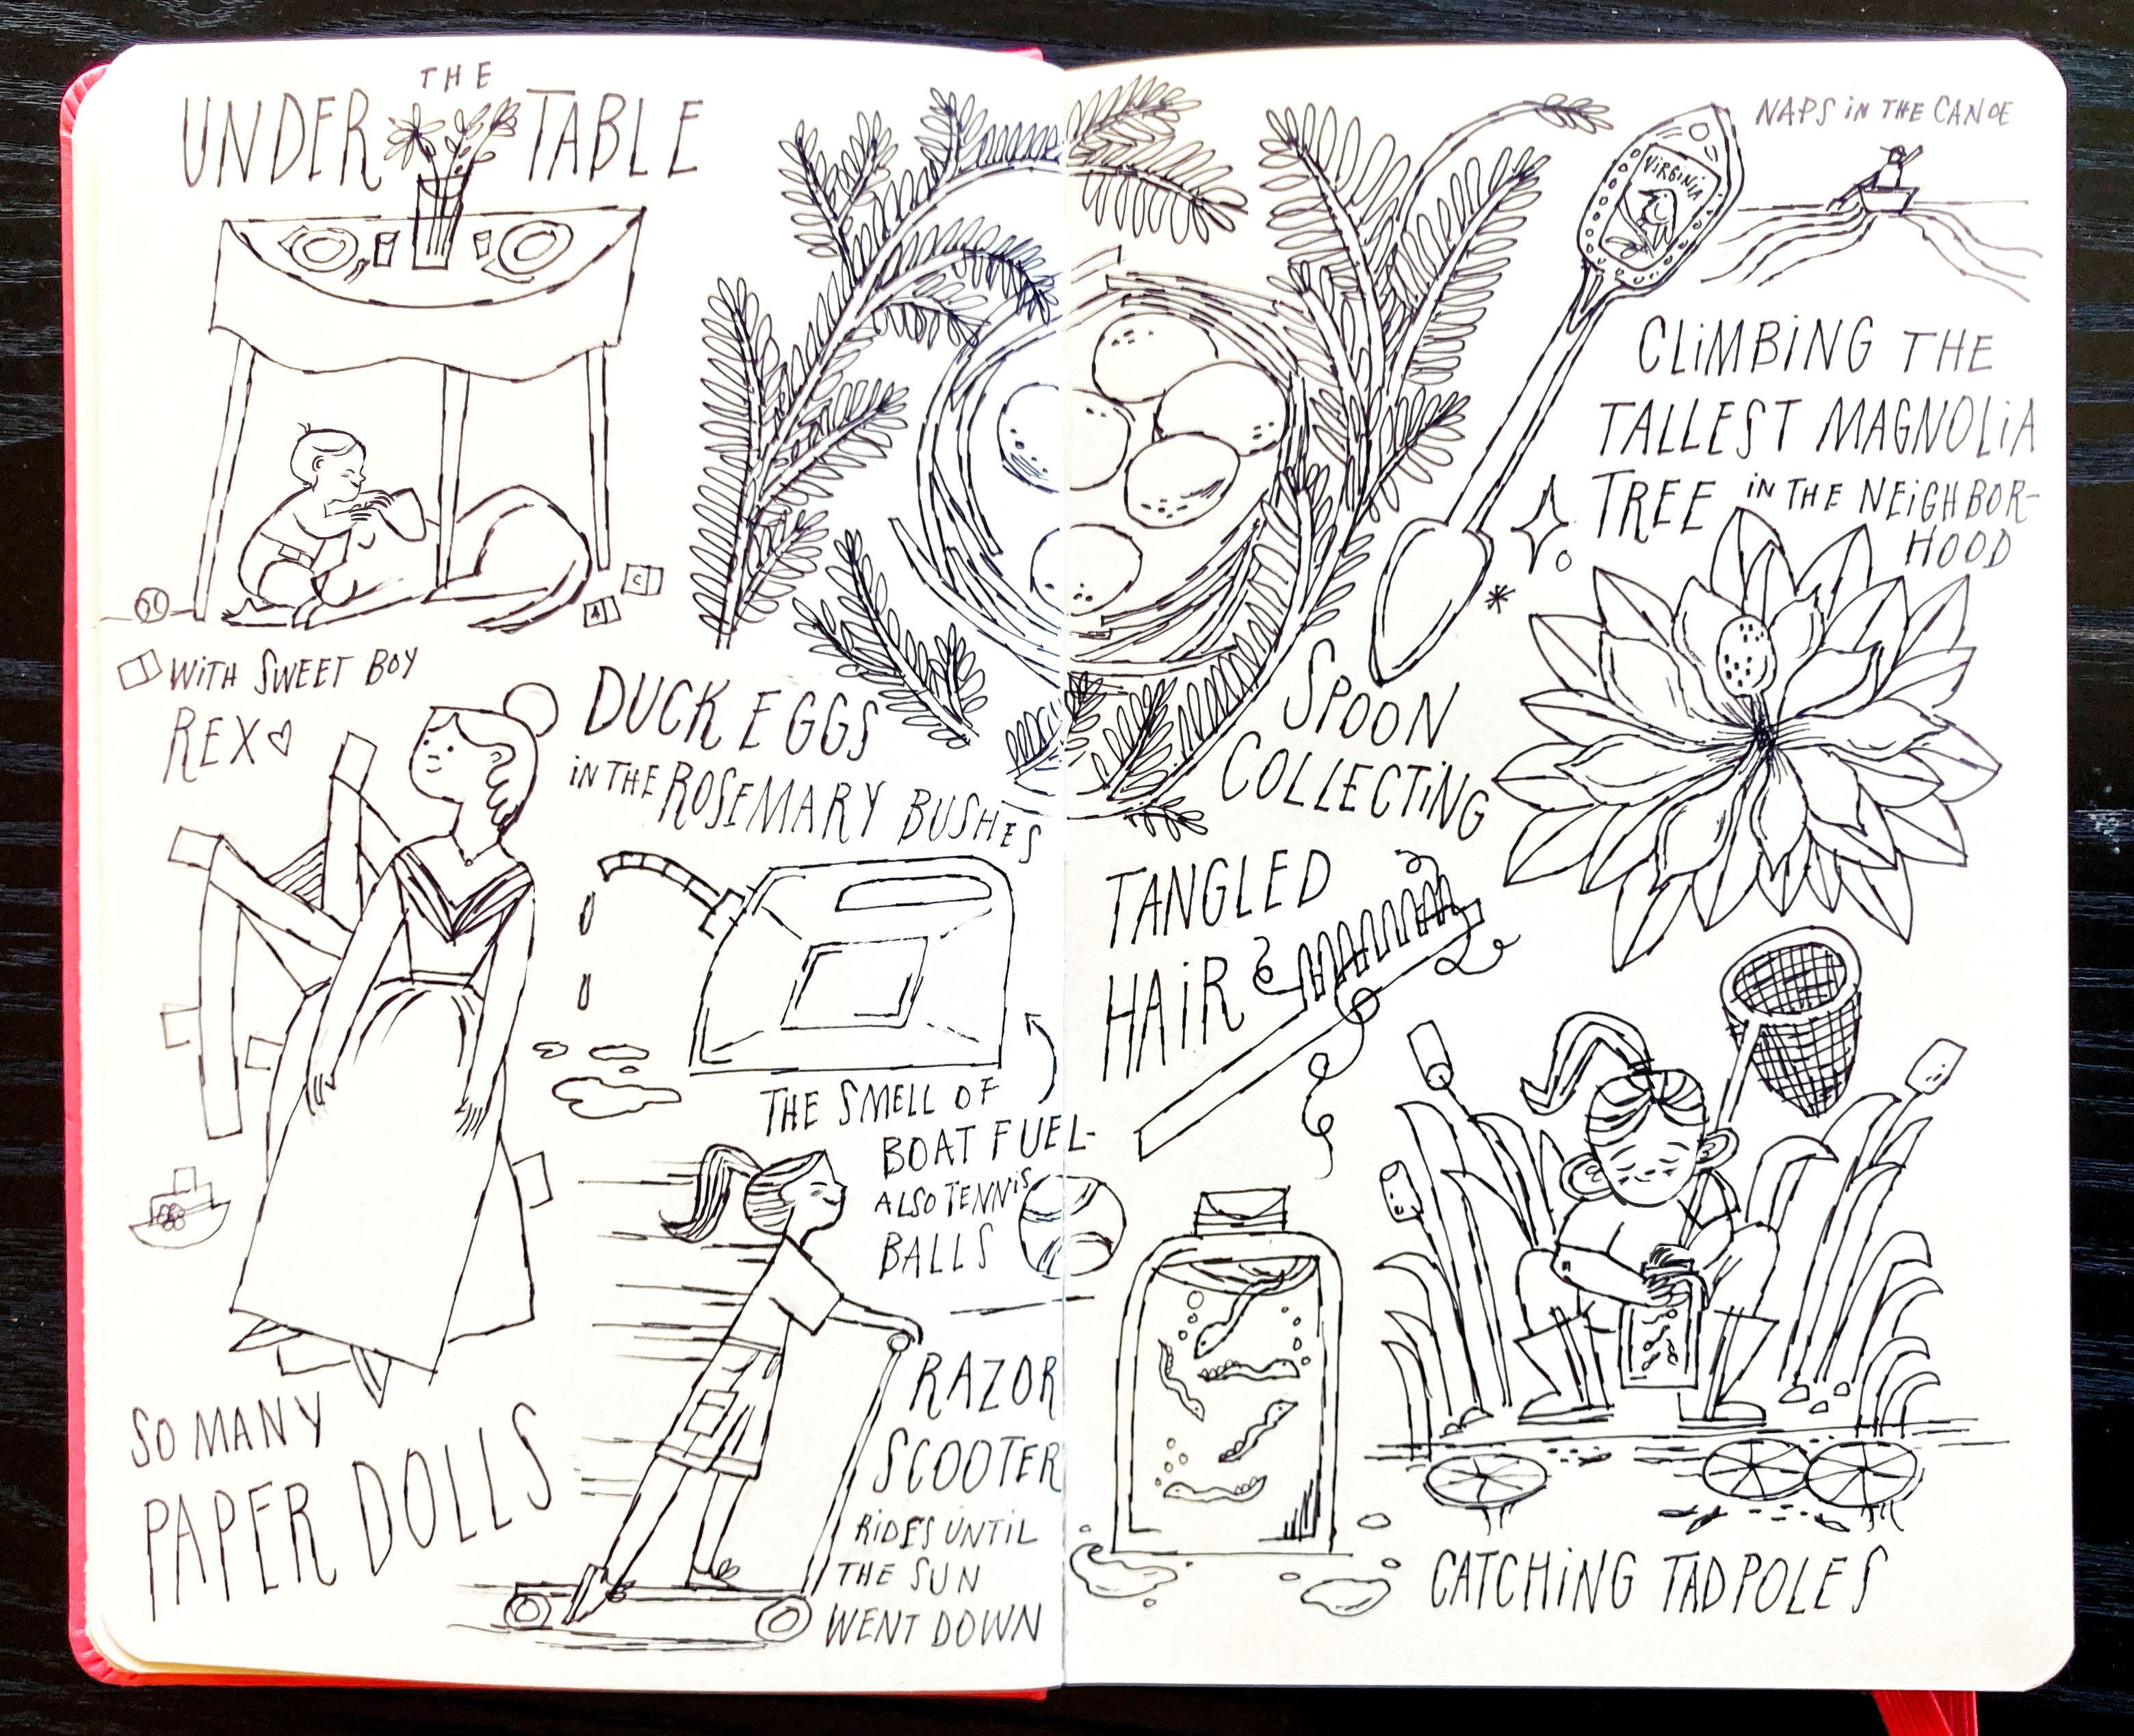 UNDER THE TABLE
C
A
WITH SWEET BOY
REX
DUCK EGGS
IN THE ROSEMARY BUSHES
THE SMELL OF
BOAT FUEL-
ALSO TENNIS
BALLS
SO MANY
PAPER DOLLS
RAZOR
SCOOTER
RIDES UNTIL
THE SUN
WENT DOWN
NAPS IN THE CANOE
VIRGINIA
CLIMBING THE
TALLEST MAGNOLIA
TREE IN THE NEIGHBOR-
HOOD
SPOON
COLLECTING
TANGLED
HAIR
CATCHING TADPOLES